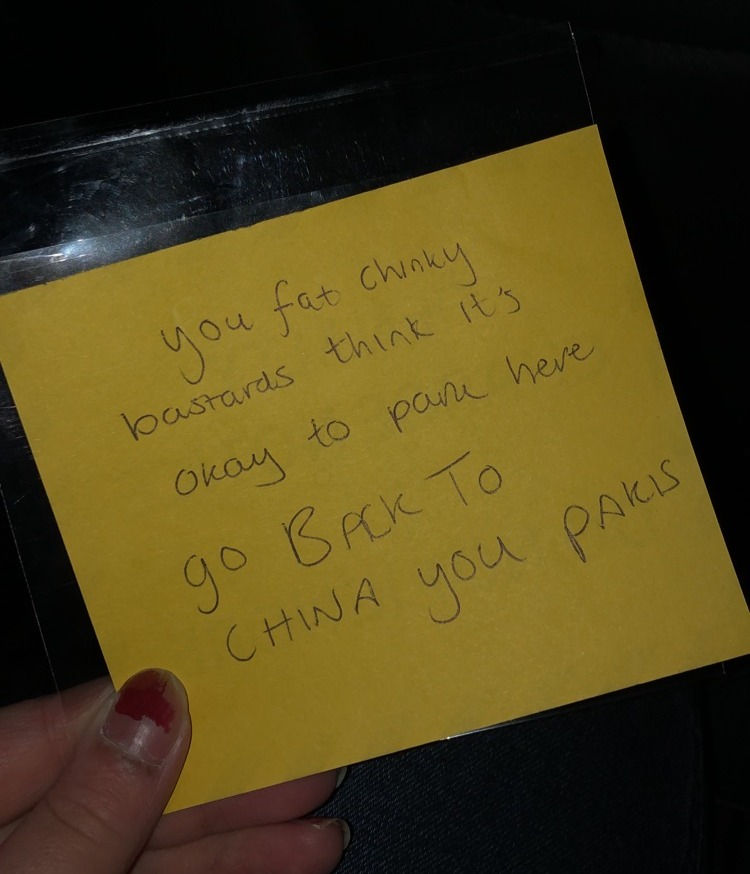 you fat chinky
bastards think it's
okay to park here
go BACK TO
CHINA you PAKIS